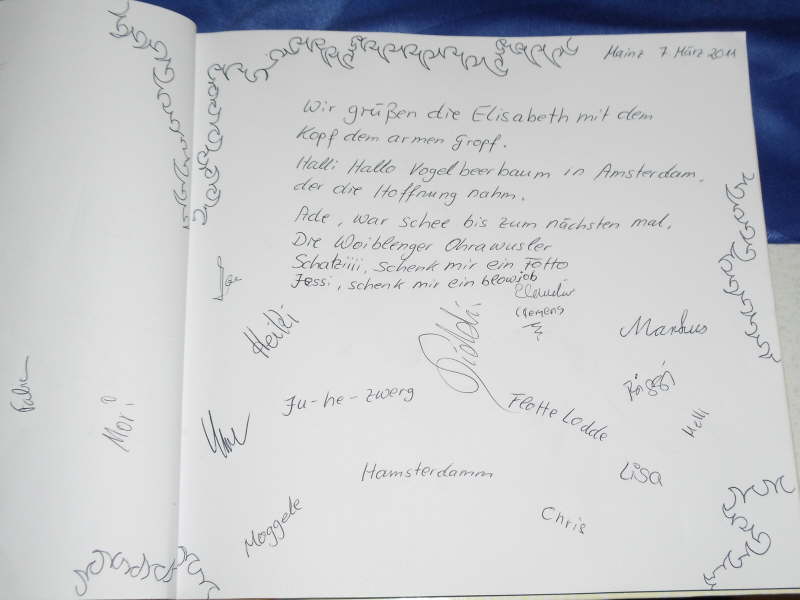 Mainz 7 März 2011
Wir grüßen die Elisabeth mit dem
Kopf dem armen Tropf.
Halli Hallo Vogelbeerbaum in Amsterdam,
der die Hoffnung nahm.
Ade, war schee bis zum nächsten mal,
Die Woiblenger Ohrawusler
Schatziiii, schenk mir ein Fotto
Jessi, schenk mir ein blowjob
Claudia
Clemens
Heiki
Markus
Ju-he-zwerg
Flotte Lodde
Melli
Mori
Hamsterdamm
Lisa
Moggele
Chris